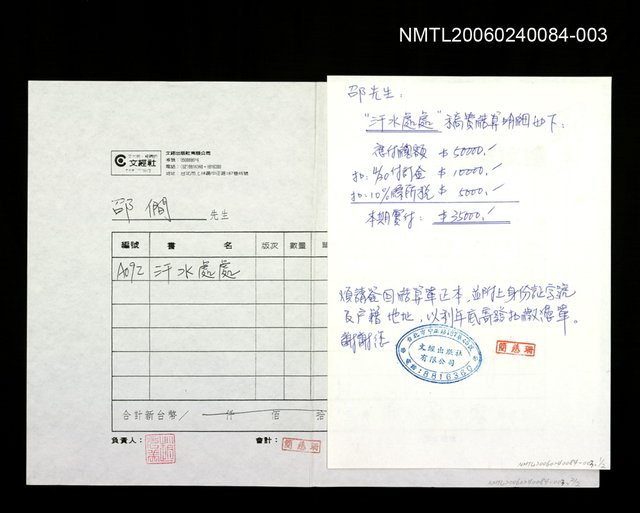 NMTL20060240084-003
文經社
文經出版社有限公司
邵僩 先生
編號 書名 版次 數量
A092 汗水處處
合計新台幣/ 仟 佰 拾
負責人： 會計：
邵先生：
"汗水處處"稿費結算明細如下：
應付總額 $50000.-
扣：4/30付訂金 $10000.-
扣：10%源所稅 $5000.-
本期實付： $35000.-
煩請簽回結算單正本，並附上身份証字號
及戶籍地址，以利年底寄發扣繳憑單。
謝謝您
文經出版社
有限公司
簡慈珊
NMTL20060240084-003, 1/2
NMTL20060240084-003, 2/2